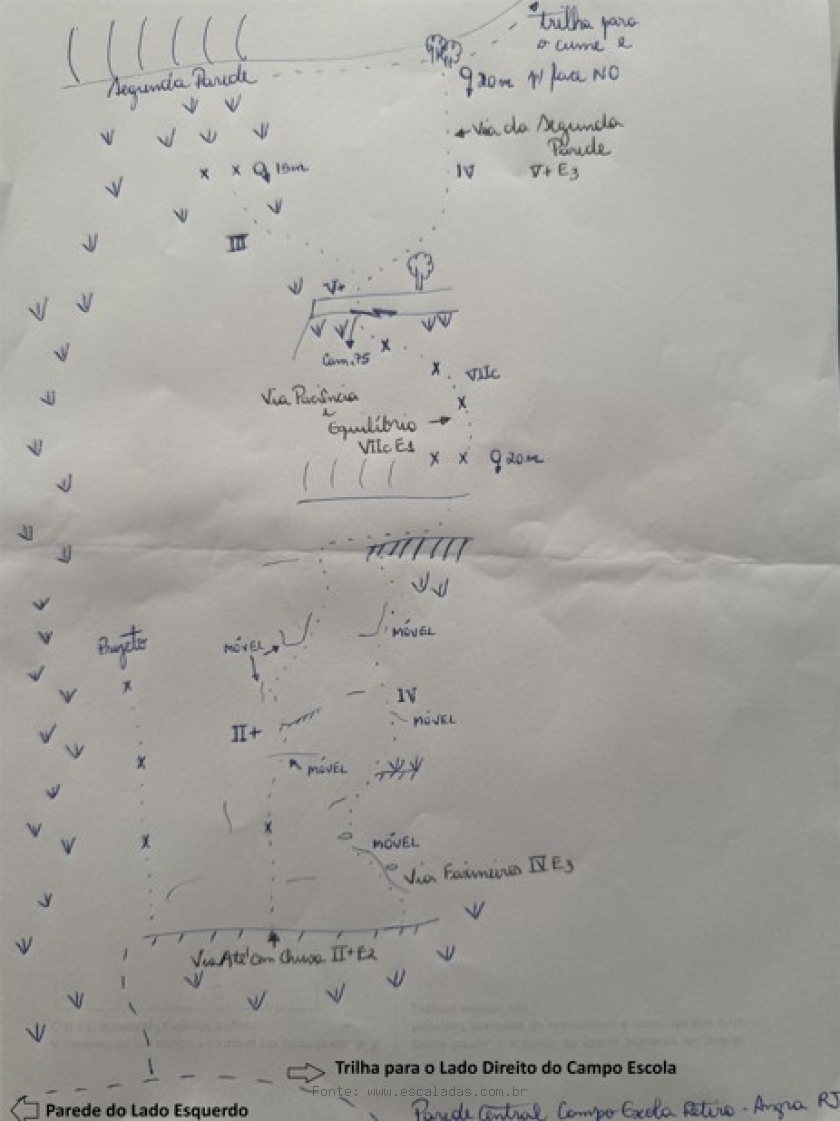 trilha para
o cume e
20m p/ face NO
Segunda Parede
Via da Segunda
Parede
IV V+ E3
15m
III
V+
Cam .75
VIIc
Via Paciência
e
Equilíbrio
VIIc E1
20m
Projeto
MÓVEL
MÓVEL
IV
MÓVEL
II+
MÓVEL
MÓVEL
Via Faximeiros IV E3
Via Até com Chuva II+ E2
Trilha para o Lado Direito do Campo Escola
Fonte: www.escaladas.com.br
Parede do Lado Esquerdo
Parede Central Campo Escola Retiro - Angra RJ